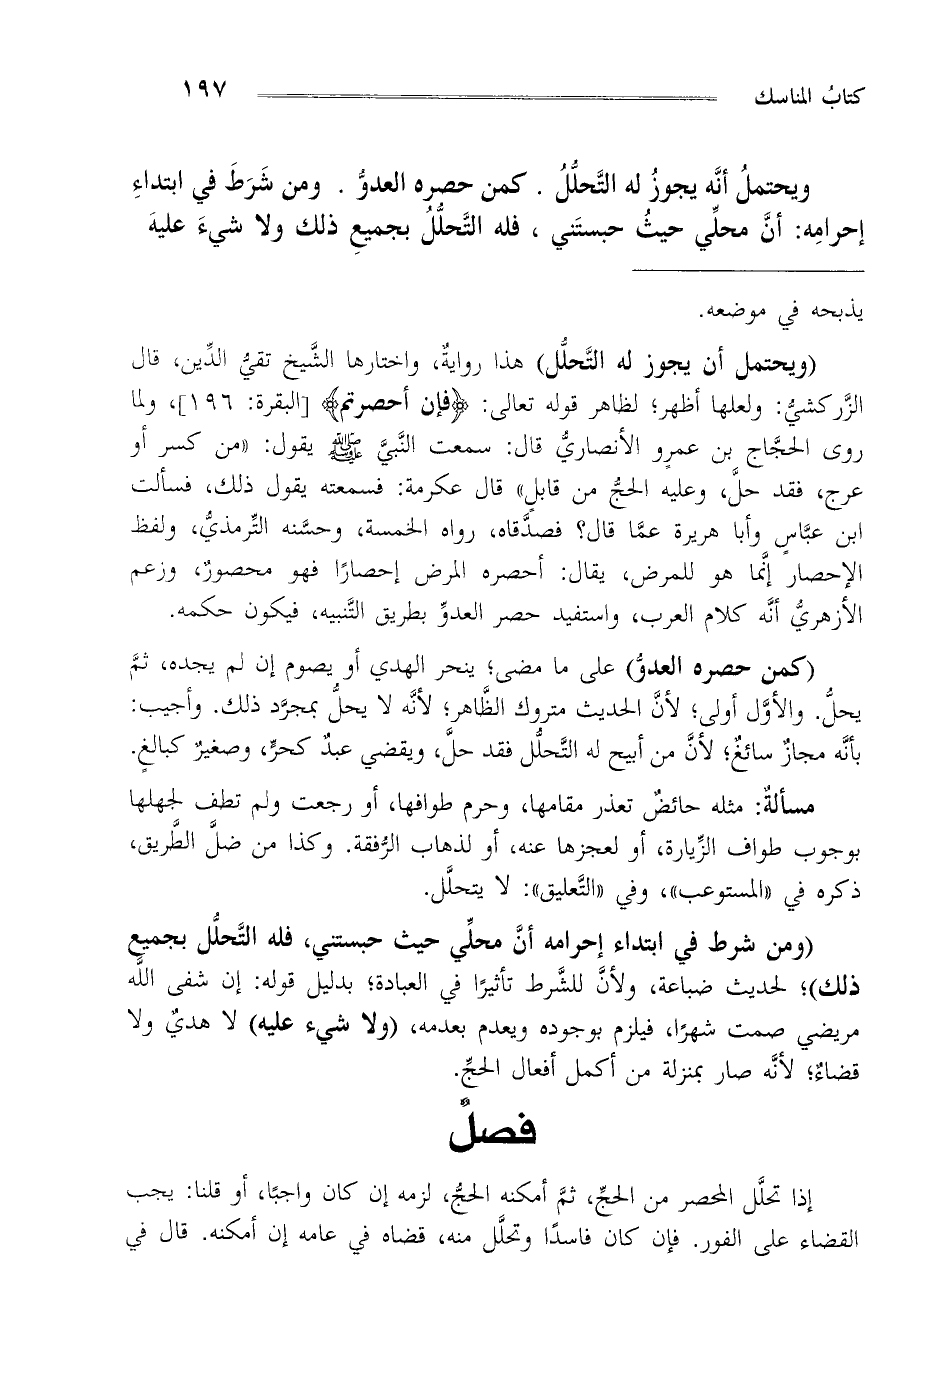 كتابُ المناسك ١٩٧
ويحتملُ أنَّه يجوزُ له التَّحلُّلُ . كمن حصره العدوُّ . ومن شَرَطَ في ابتداءِ
إحرامِه: أنَّ محلِّي حيثُ حبستَني ، فله التَّحلُّلُ بجميعِ ذلك ولا شيءَ عليهَ
يذبحه في موضعه.
(ويحتمل أن يجوز له التَّحلُّل) هذا روايةٌ، واختارها الشَّيخ تقيُّ الدِّين، قال
الزَّركشيُّ: ولعلها أظهر؛ لظاهر قوله تعالى: ﴿فإن أحصرتم﴾ [البقرة: ١٩٦]، ولما
روى الحجَّاج بن عمرٍو الأنصاريُّ قال: سمعت النَّبيَّ ﷺ يقول: «من كسر أو
عرج، فقد حلَّ، وعليه الحجُّ من قابلٍ» قال عكرمة: فسمعته يقول ذلك، فسألت
ابن عبَّاسٍ وأبا هريرة عمَّا قال؟ فصدَّقاه، رواه الخمسة، وحسَّنه التِّرمذيُّ، ولفظ
الإحصار إنَّما هو للمرض، يقال: أحصره المرض إحصارًا فهو محصورٌ، وزعم
الأزهريُّ أنَّه كلام العرب، واستفيد حصر العدوِّ بطريق التَّنبيه، فيكون حكمه.
(كمن حصره العدوُّ) على ما مضى؛ ينحر الهدي أو يصوم إن لم يجده، ثمَّ
يحلُّ. والأوَّل أولى؛ لأنَّ الحديث متروك الظَّاهر؛ لأنَّه لا يحلُّ بمجرَّد ذلك. وأجيب:
بأنَّه مجازٌ سائغٌ؛ لأنَّ من أبيح له التَّحلُّل فقد حلَّ، ويقضي عبدٌ كحرٍّ، وصغيرٌ كبالغٍ.
مسألةٌ: مثله حائضٌ تعذر مقامها، وحرم طوافها، أو رجعت ولم تطف لجهلها
بوجوب طواف الزِّيارة، أو لعجزها عنه، أو لذهاب الرُّفقة. وكذا من ضلَّ الطَّريق،
ذكره في «المستوعب»، وفي «التَّعليق»: لا يتحلَّل.
(ومن شرط في ابتداء إحرامه أنَّ محلِّي حيث حبستني، فله التَّحلُّل بجميع
ذلك)؛ لحديث ضباعة، ولأنَّ للشَّرط تأثيرًا في العبادة؛ بدليل قوله: إن شفى اللَّه
مريضي صمت شهرًا، فيلزم بوجوده ويعدم بعدمه، (ولا شيء عليه) لا هديٌ ولا
قضاءٌ؛ لأنَّه صار بمنزلة من أكمل أفعال الحجِّ.
فصلٌ
إذا تحلَّل المحصر من الحجِّ، ثمَّ أمكنه الحجُّ، لزمه إن كان واجبًا، أو قلنا: يجب
القضاء على الفور. فإن كان فاسدًا وتحلَّل منه، قضاه في عامه إن أمكنه. قال في